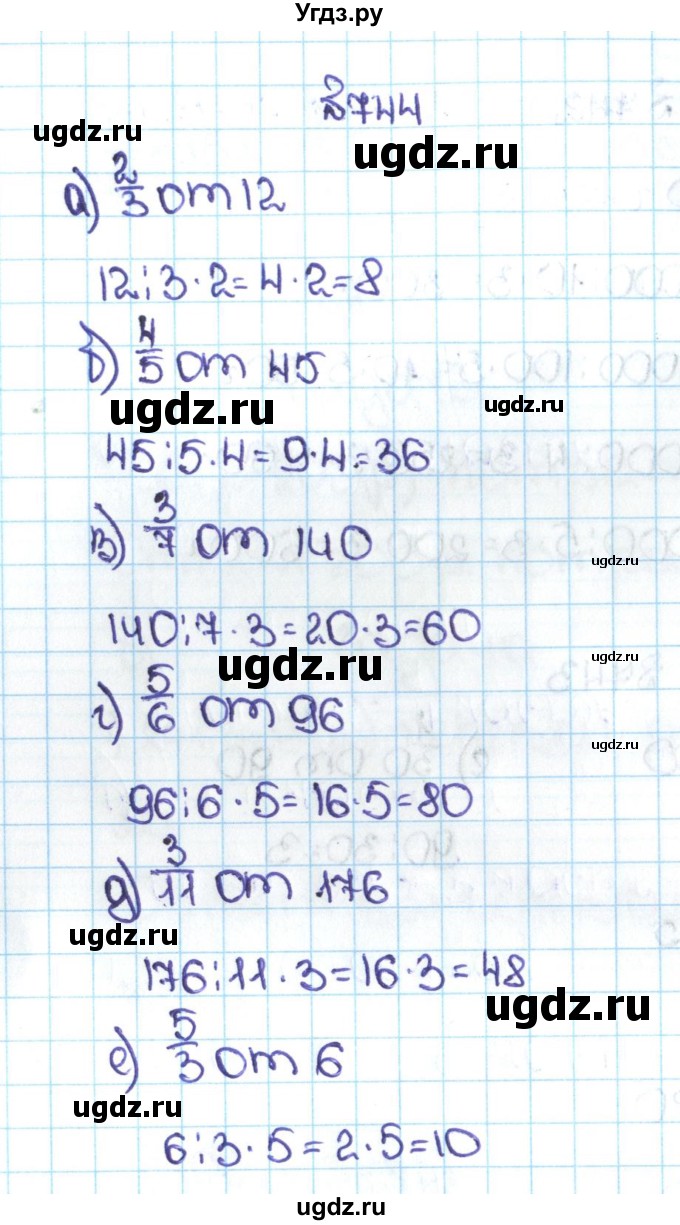 Угдз.ру
№744
ugdz.ru
ugdz.ru
а) 2/3 от 12
12:3·2=4·2=8
б) 4/5 от 45
ugdz.ru
ugdz.ru
45:5·4=9·4=36
в) 3/7 от 140
ugdz.ru
140:7·3=20·3=60
ugdz.ru
ugdz.ru
г) 5/6 от 96
ugdz.ru
96:6·5=16·5=80
д) 3/11 от 176
ugdz.ru
176:11·3=16·3=48
ugdz.ru
е) 5/3 от 6
ugdz.ru
6:3·5=2·5=10
ugdz.ru